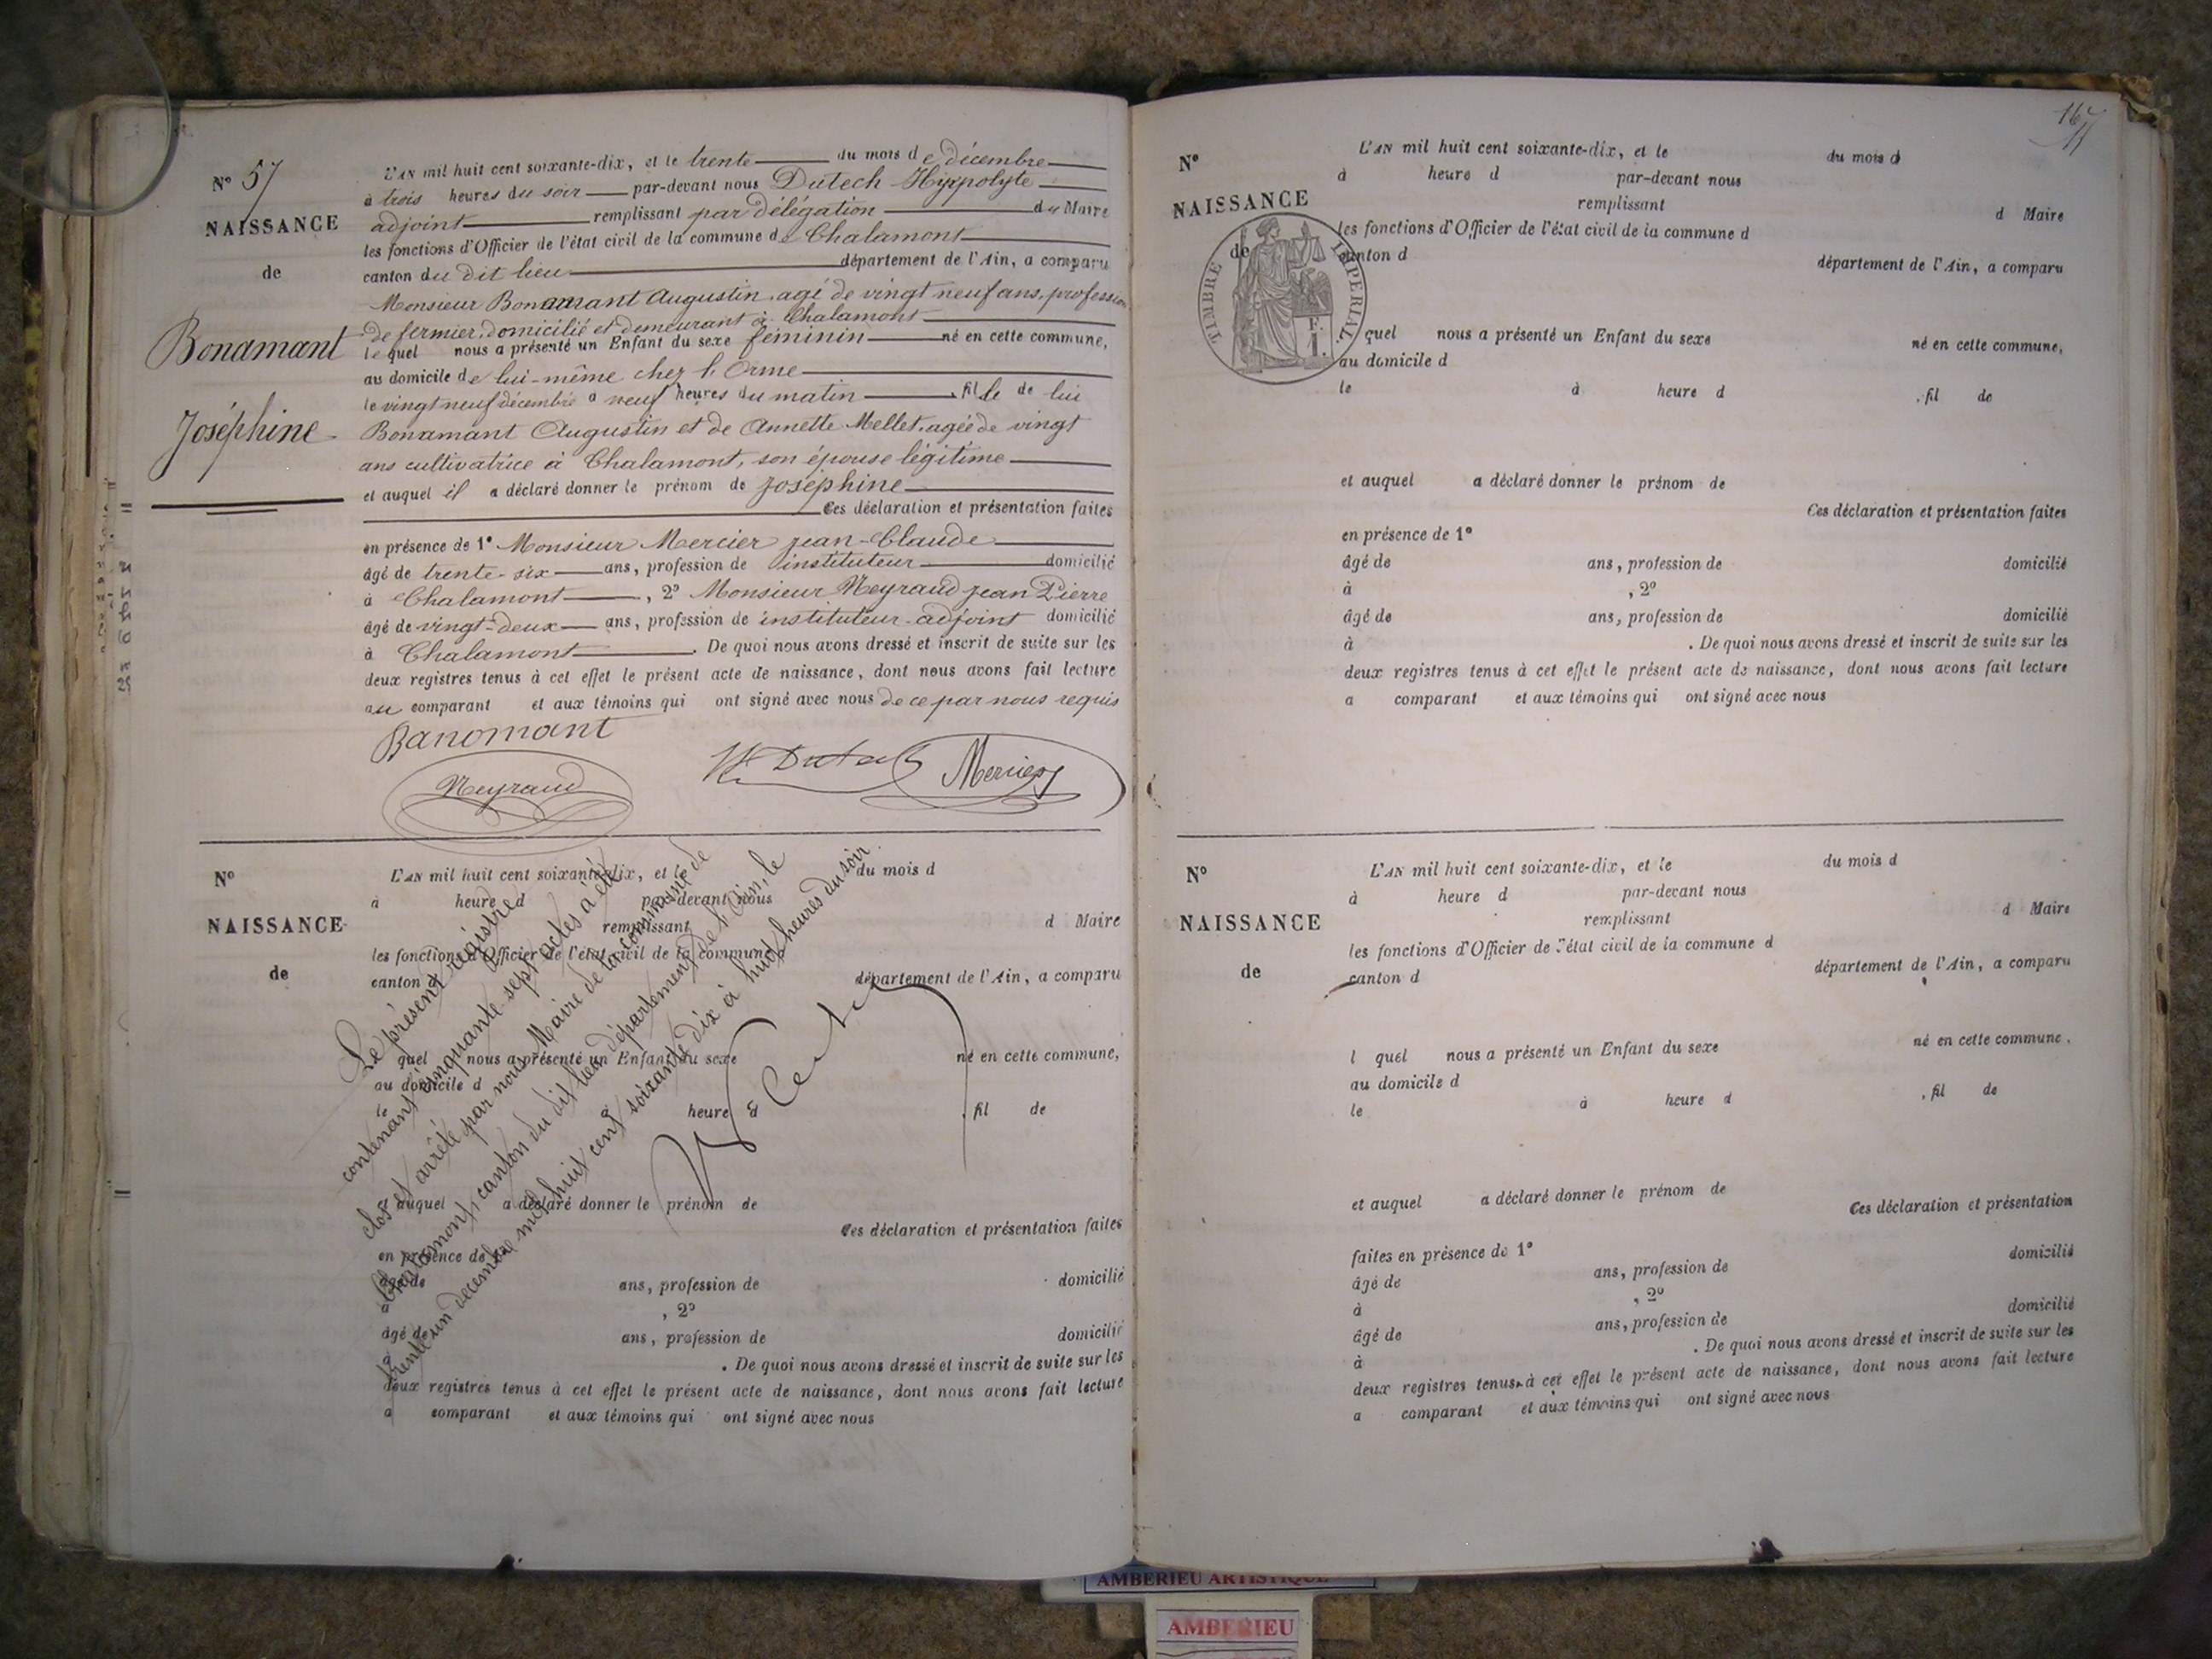 N° 57
NAISSANCE
de
Bonamant
Joséphine
L'AN mil huit cent soixante-dix, et le trente du mois de décembre
à trois heures du soir par-devant nous Dutech Hyppolyte
adjoint remplissant par délégation du Maire
les fonctions d'Officier de l'état civil de la commune de Chalamont
canton du dit lieu département de l'Ain, a comparu
Monsieur Bonamant Augustin, agé de vingt neuf ans, profession
de fermier, domicilié et demeurant à Chalamont
le quel nous a présenté un Enfant du sexe féminin né en cette commune,
au domicile de lui-même chez l'Orme
le vingt neuf décembre à neuf heures du matin, fille de lui
Bonamant Augustin et de Annette Mellet, agée de vingt
ans cultivatrice à Chalamont, son épouse légitime
et auquel il a déclaré donner le prénom de Joséphine
Ces déclaration et présentation faites
en présence de 1° Monsieur Mercier jean-Claude
âgé de trente-six ans, profession de instituteur domicilié
à Chalamont, 2° Monsieur Neyraud jean Pierre
âgé de vingt-deux ans, profession de instituteur-adjoint domicilié
à Chalamont. De quoi nous avons dressé et inscrit de suite sur les
deux registres tenus à cet effet le présent acte de naissance, dont nous avons fait lecture
au comparant et aux témoins qui ont signé avec nous de ce par nous requis
Banomant
Neyraud
H Dutech
Mercier
N°
NAISSANCE
de
L'AN mil huit cent soixante-dix, et le du mois d
à heure d par-devant nous
remplissant d Maire
les fonctions d'Officier de l'état civil de la commune d
canton d département de l'Ain, a comparu
quel nous a présenté un Enfant du sexe né en cette commune,
au domicile d
le à heure d , fil de
et auquel a déclaré donner le prénom de
Ces déclaration et présentation faites
en présence de 1°
âgé de ans, profession de domicilié
à , 2°
âgé de ans, profession de domicilié
à . De quoi nous avons dressé et inscrit de suite sur les
deux registres tenus à cet effet le présent acte de naissance, dont nous avons fait lecture
a comparant et aux témoins qui ont signé avec nous
Le présent registre
contenant cinquante sept actes a été
clos et arrêté par nous Maire de la commune de
Chalamont, canton du dit lieu, département de l'Ain, le
trente un décembre mil huit cent soixante dix à huit heures du soir.
167
N°
NAISSANCE
de
TIMBRE IMPERIAL
L'AN mil huit cent soixante-dix, et le du mois d
à heure d par-devant nous
remplissant d Maire
les fonctions d'Officier de l'état civil de la commune d
canton d département de l'Ain, a comparu
l quel nous a présenté un Enfant du sexe né en cette commune,
au domicile d
le à heure d , fil de
et auquel a déclaré donner le prénom de
Ces déclaration et présentation faites
en présence de 1°
âgé de ans, profession de domicilié
à , 2°
âgé de ans, profession de domicilié
à . De quoi nous avons dressé et inscrit de suite sur les
deux registres tenus à cet effet le présent acte de naissance, dont nous avons fait lecture
a comparant et aux témoins qui ont signé avec nous
N°
NAISSANCE
de
L'AN mil huit cent soixante-dix, et le du mois d
à heure d par-devant nous
remplissant d Maire
les fonctions d'Officier de l'état civil de la commune d
canton d département de l'Ain, a comparu
l quel nous a présenté un Enfant du sexe né en cette commune,
au domicile d
le à heure d , fil de
et auquel a déclaré donner le prénom de
Ces déclaration et présentation
faites en présence de 1° domicilié
âgé de ans, profession de
à , 2° domicilié
âgé de ans, profession de
à . De quoi nous avons dressé et inscrit de suite sur les
deux registres tenus à cet effet le présent acte de naissance, dont nous avons fait lecture
a comparant et aux témoins qui ont signé avec nous
AMBERIEU ARTISTIQUE
AMBERIEU